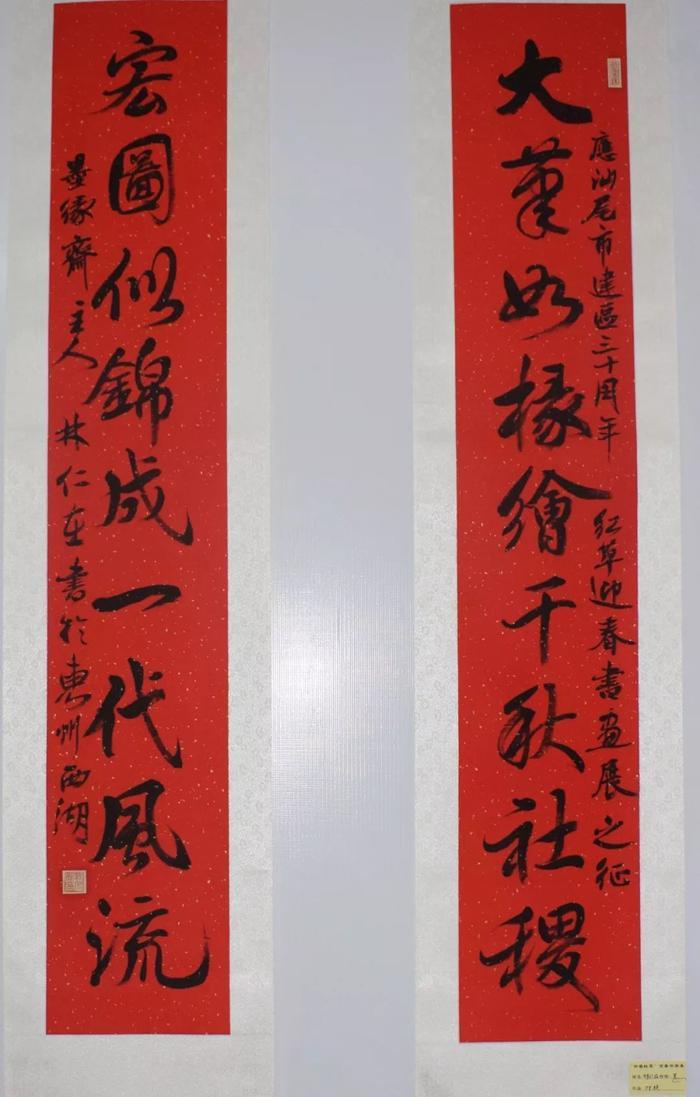 大筆如椽繪千秋社稷
應汕尾市建區三十周年 紅草迎春書畫展之征
宏圖似錦成一代風流
墨緣齋主人 林仁在書於惠州西湖